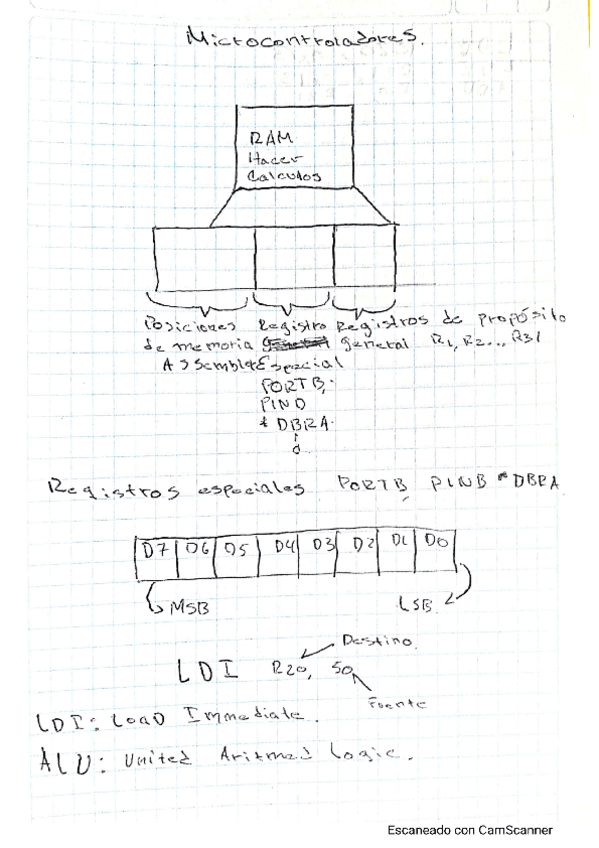 Microcontroladores.
RAM
Hacer
Calculos
Posiciones Registro Registros de propósito
de memoria general R1, R2..., R31
Assembler Especial
PORTB,
PIND
* DBRA.
Registros especiales PORTB, PINB * DBRA
D7 D6 D5 D4 D3 D2 D1 D0
MSB LSB
Destino.
LDI R20, 50
Fuente
LDI: Load Immediate.
ALU: United Aritmed Logic.
Escaneado con CamScanner